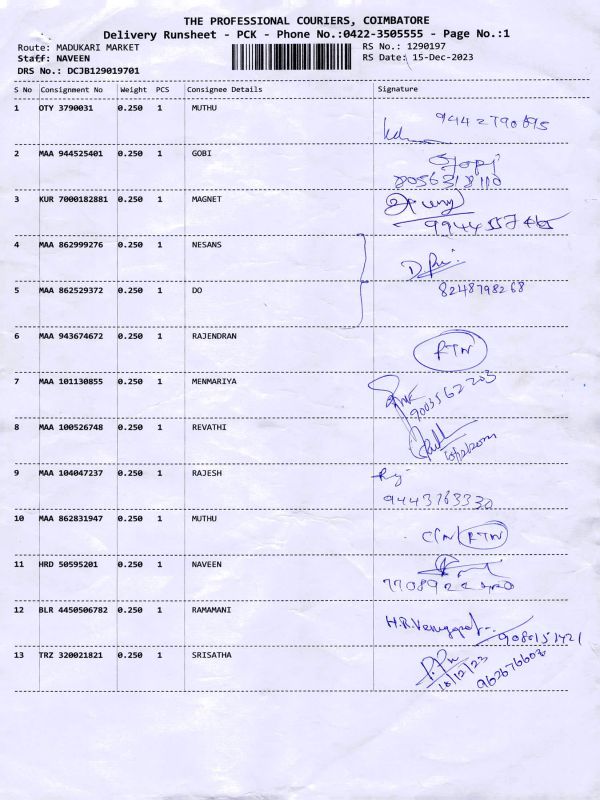 THE PROFESSIONAL COURIERS, COIMBATORE
Delivery Runsheet - PCK - Phone No.:0422-3505555 - Page No.:1
Route: MADUKARI MARKET RS No.: 1290197
Staff: NAVEEN RS Date: 15-Dec-2023
DRS No.: DCJB129019701
S No Consignment No Weight PCS Consignee Details Signature
1 OTY 3790031 0.250 1 MUTHU
2 MAA 944525401 0.250 1 GOBI
Gopi
8056318110
3 KUR 7000182881 0.250 1 MAGNET
4 MAA 862999276 0.250 1 NESANS
5 MAA 862529372 0.250 1 DO 8248798268
6 MAA 943674672 0.250 1 RAJENDRAN RTN
7 MAA 101130855 0.250 1 MENMARIYA
9003562203
8 MAA 100526748 0.250 1 REVATHI
9 MAA 104047237 0.250 1 RAJESH
9443763330
10 MAA 862831947 0.250 1 MUTHU RTN
11 HRD 50595201 0.250 1 NAVEEN
12 BLR 4450506782 0.250 1 RAMAMANI
13 TRZ 320021821 0.250 1 SRISATHA